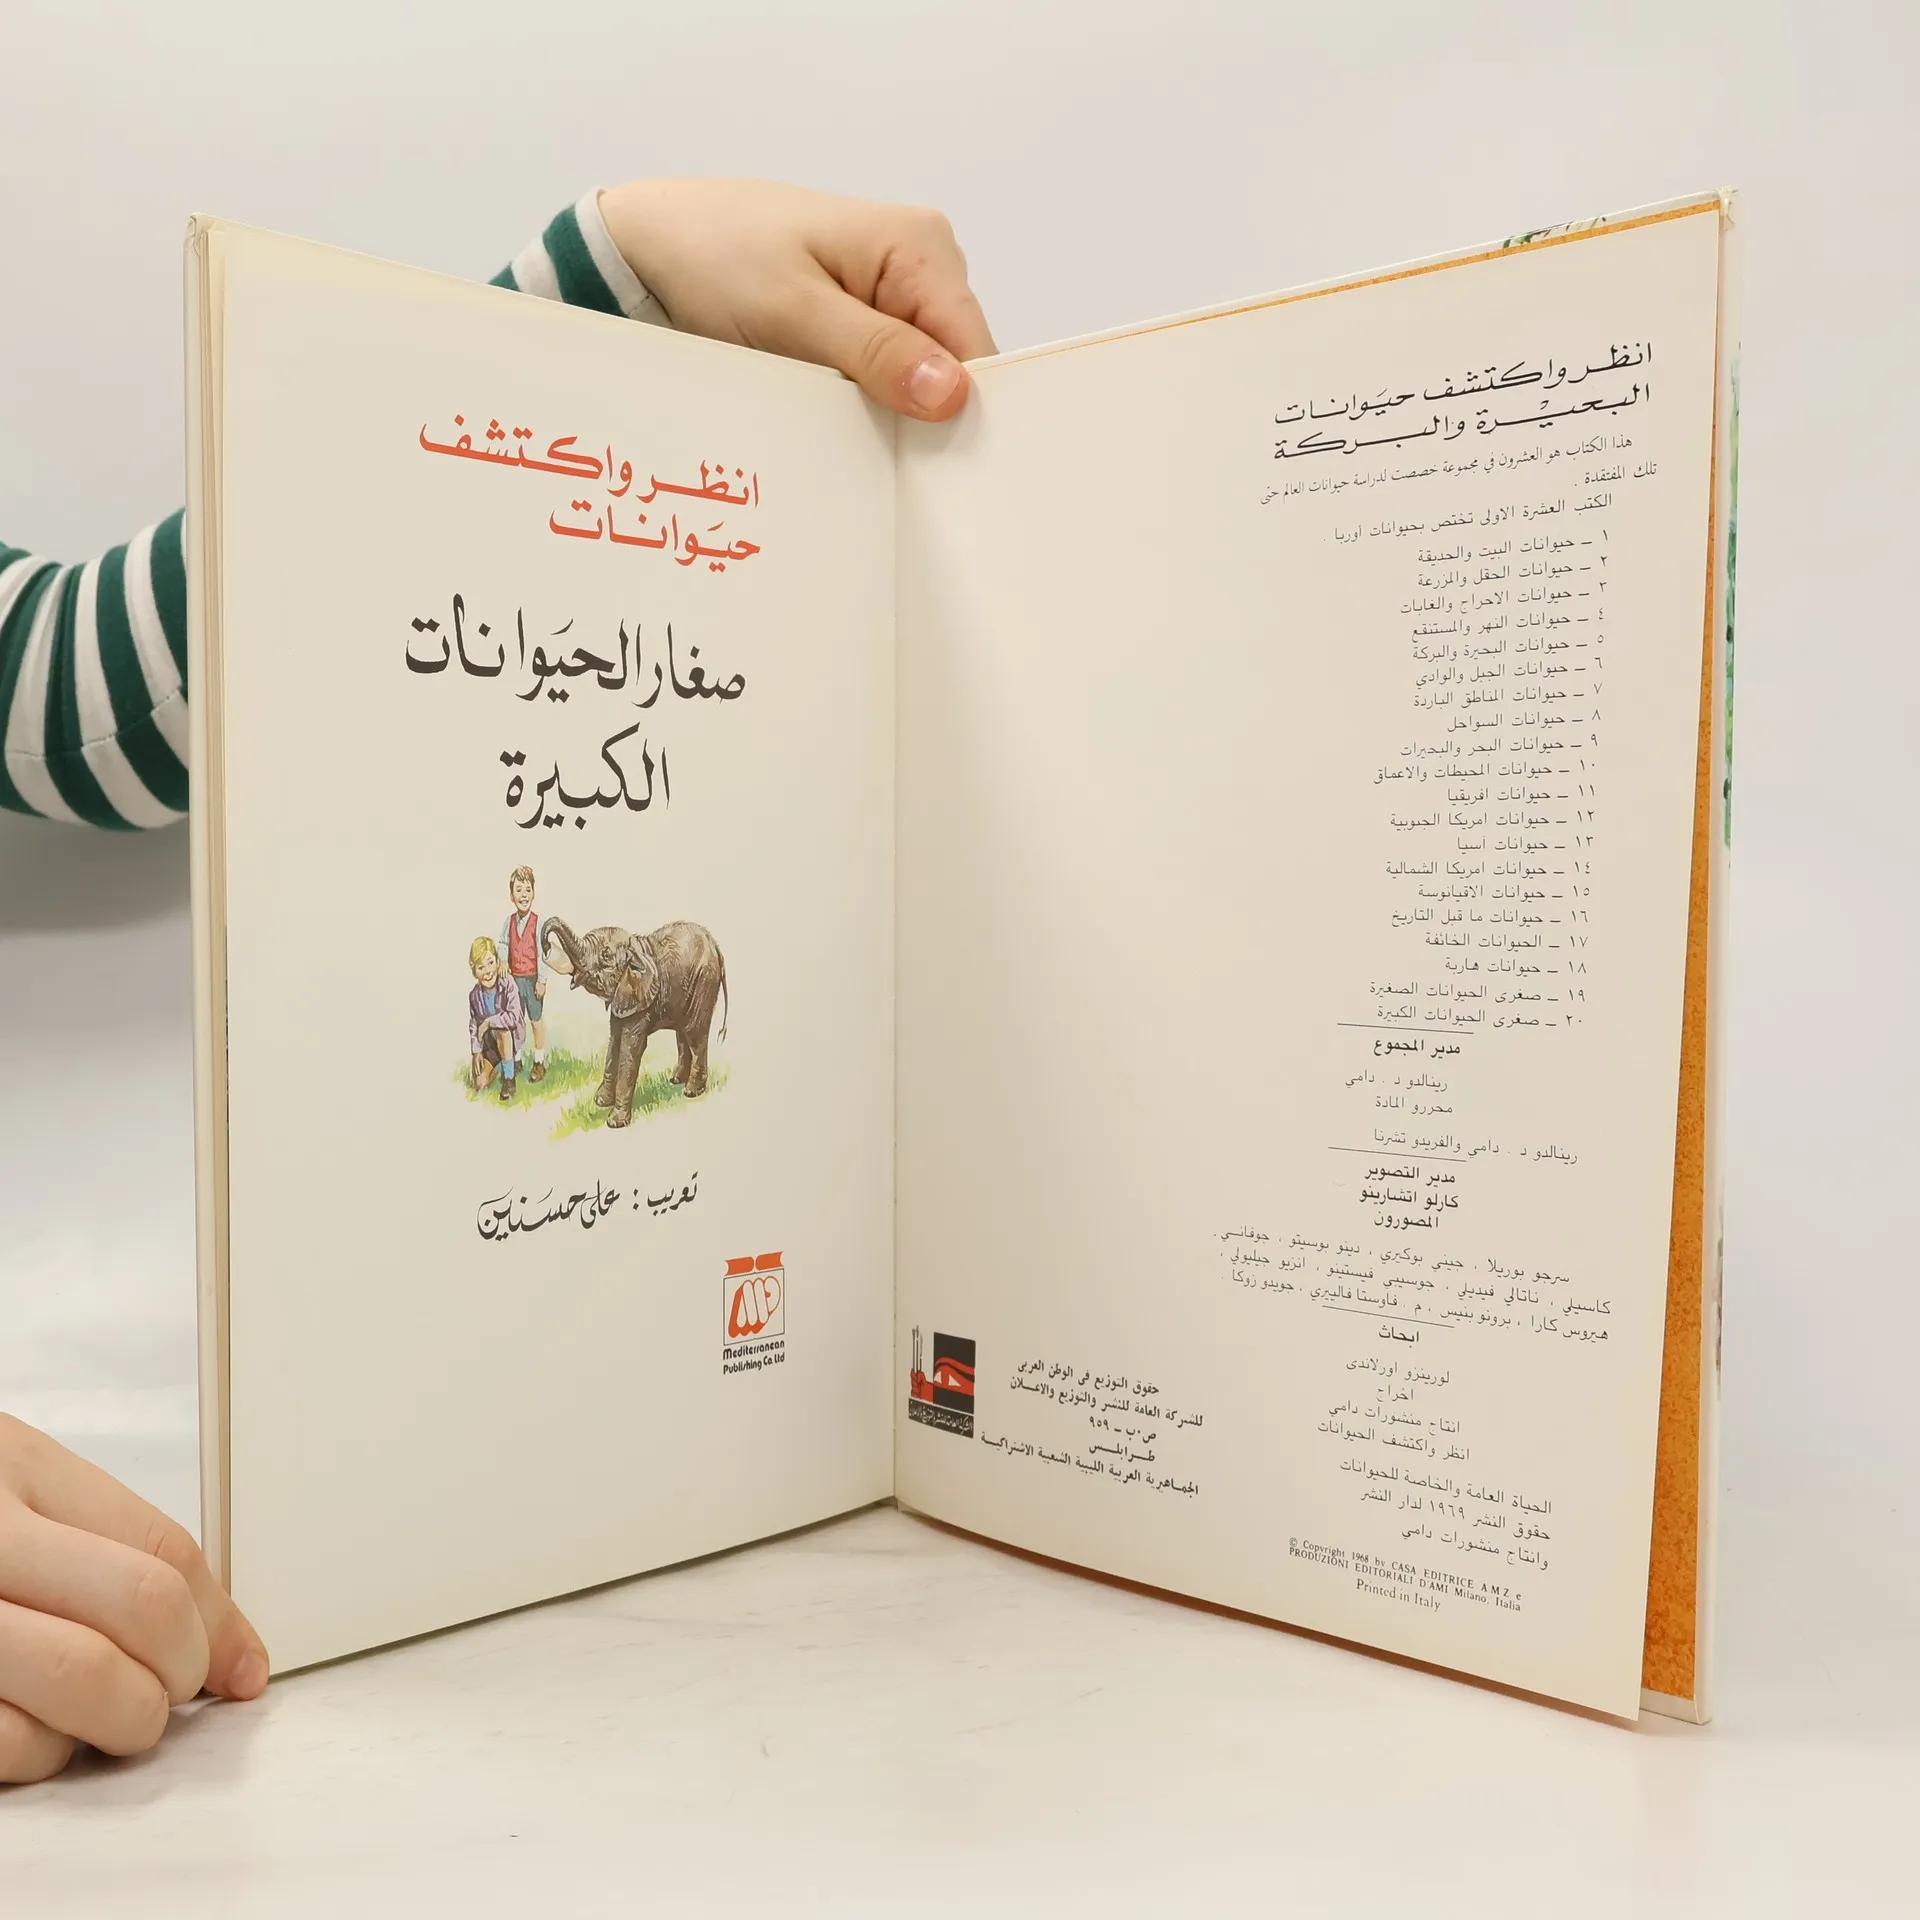 انظر واكتشف حيوانات
البحيرة والبركة
هذا الكتاب هو العشرون في مجموعة خصصت لدراسة حيوانات العالم حتى
تلك المفتقدة .
الكتب العشرة الاولى تختص بحيوانات اوربا .
١ ـ حيوانات البيت والحديقة
٢ ـ حيوانات الحقل والمزرعة
٣ ـ حيوانات الاحراج والغابات
٤ ـ حيوانات النهر والمستنقع
٥ ـ حيوانات البحيرة والبركة
٦ ـ حيوانات الجبل والوادي
٧ ـ حيوانات المناطق الباردة
٨ ـ حيوانات السواحل
٩ ـ حيوانات البحر والبحيرات
١٠ ـ حيوانات المحيطات والاعماق
١١ ـ حيوانات افريقيا
١٢ ـ حيوانات امريكا الجنوبية
١٣ ـ حيوانات آسيا
١٤ ـ حيوانات امريكا الشمالية
١٥ ـ حيوانات الاقيانوسة
١٦ ـ حيوانات ما قبل التاريخ
١٧ ـ الحيوانات الخائفة
١٨ ـ حيوانات هاربة
١٩ ـ صغرى الحيوانات الصغيرة
٢٠ ـ صغرى الحيوانات الكبيرة
مدير المجموع
رينالدو د . دامي
محررو المادة
رينالدو د . دامي والفريدو تشرنا
مدير التصوير
كارلو اتشارينو
المصورون
سرجو بوريلا ، جيني بوكيري ، دينو بوسيتو ، جوفاني .
كاسيلي ، ناتالي فيديلي ، جوسيبي فيستينو ، انزيو جيليولي ،
هيروس كارا ، برونو بنيس ، م . فاوستا فالييري ، جويدو زوكا .
ابحاث
لورينزو اورلاندى
اخراج
انتاج منشورات دامي
انظر واكتشف الحيوانات
الحياة العامة والخاصة للحيوانات
حقوق النشر ١٩٦٩ لدار النشر
وانتاج منشورات دامي
© Copyright 1968 by CASA EDITRICE A M Z e
PRODUZIONI EDITORIALI D'AMI Milano, Italia
Printed in Italy
حقوق التوزيع في الوطن العربى
للشركة العامة للنشر والتوزيع والاعلان
ص.ب ـ ٩٥٩
طرابلس
الجماهيرية العربية الليبية الشعبية الاشتراكية
انظر واكتشف
حيوانات
صغار الحيوانات
الكبيرة
تعريب : على حسنين
Mediterranean
Publishing Co. Ltd